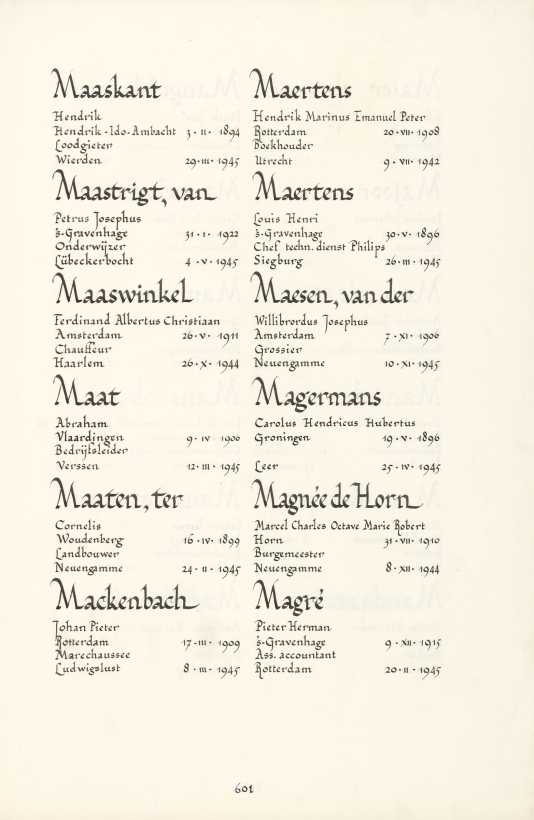 Maaskant
Hendrik
Hendrik-Ido-Ambacht 3·II· 1894
Loodgieter
Wierden 29·III· 1945
Maastrigt, van
Petrus Josephus
's-Gravenhage 31·I· 1922
Onderwijzer
Lübeckerbocht 4·V· 1945
Maaswinkel
Ferdinand Albertus Christiaan
Amsterdam 26·V· 1911
Chauffeur
Haarlem 26·X· 1944
Maat
Abraham
Vlaardingen 9·IV 1906
Bedrijfsleider
Verssen 12·III· 1945
Maaten, ter
Cornelis
Woudenberg 16·IV· 1899
Landbouwer
Neuengamme 24·II· 1945
Mackenbach
Johan Pieter
Rotterdam 17·III· 1909
Marechaussee
Ludwigslust 8·III· 1945
Maertens
Hendrik Marinus Emanuel Peter
Rotterdam 20·VII· 1908
Boekhouder
Utrecht 9·VII· 1942
Maertens
Louis Henri
's-Gravenhage 30·V· 1896
Chef techn. dienst Philips
Siegburg 26·III· 1945
Maesen, van der
Willibrordus Josephus
Amsterdam 7·XI· 1906
Grossier
Neuengamme 10·XI· 1945
Magermans
Carolus Hendricus Hubertus
Groningen 19·V· 1896
Leer 25·IV· 1945
Magnée de Horn
Marcel Charles Octave Marie Robert
Horn 31·VII· 1910
Burgemeester
Neuengamme 8·XII· 1944
Magré
Pieter Herman
's-Gravenhage 9·XII· 1915
Ass. accountant
Rotterdam 20·II· 1945
601